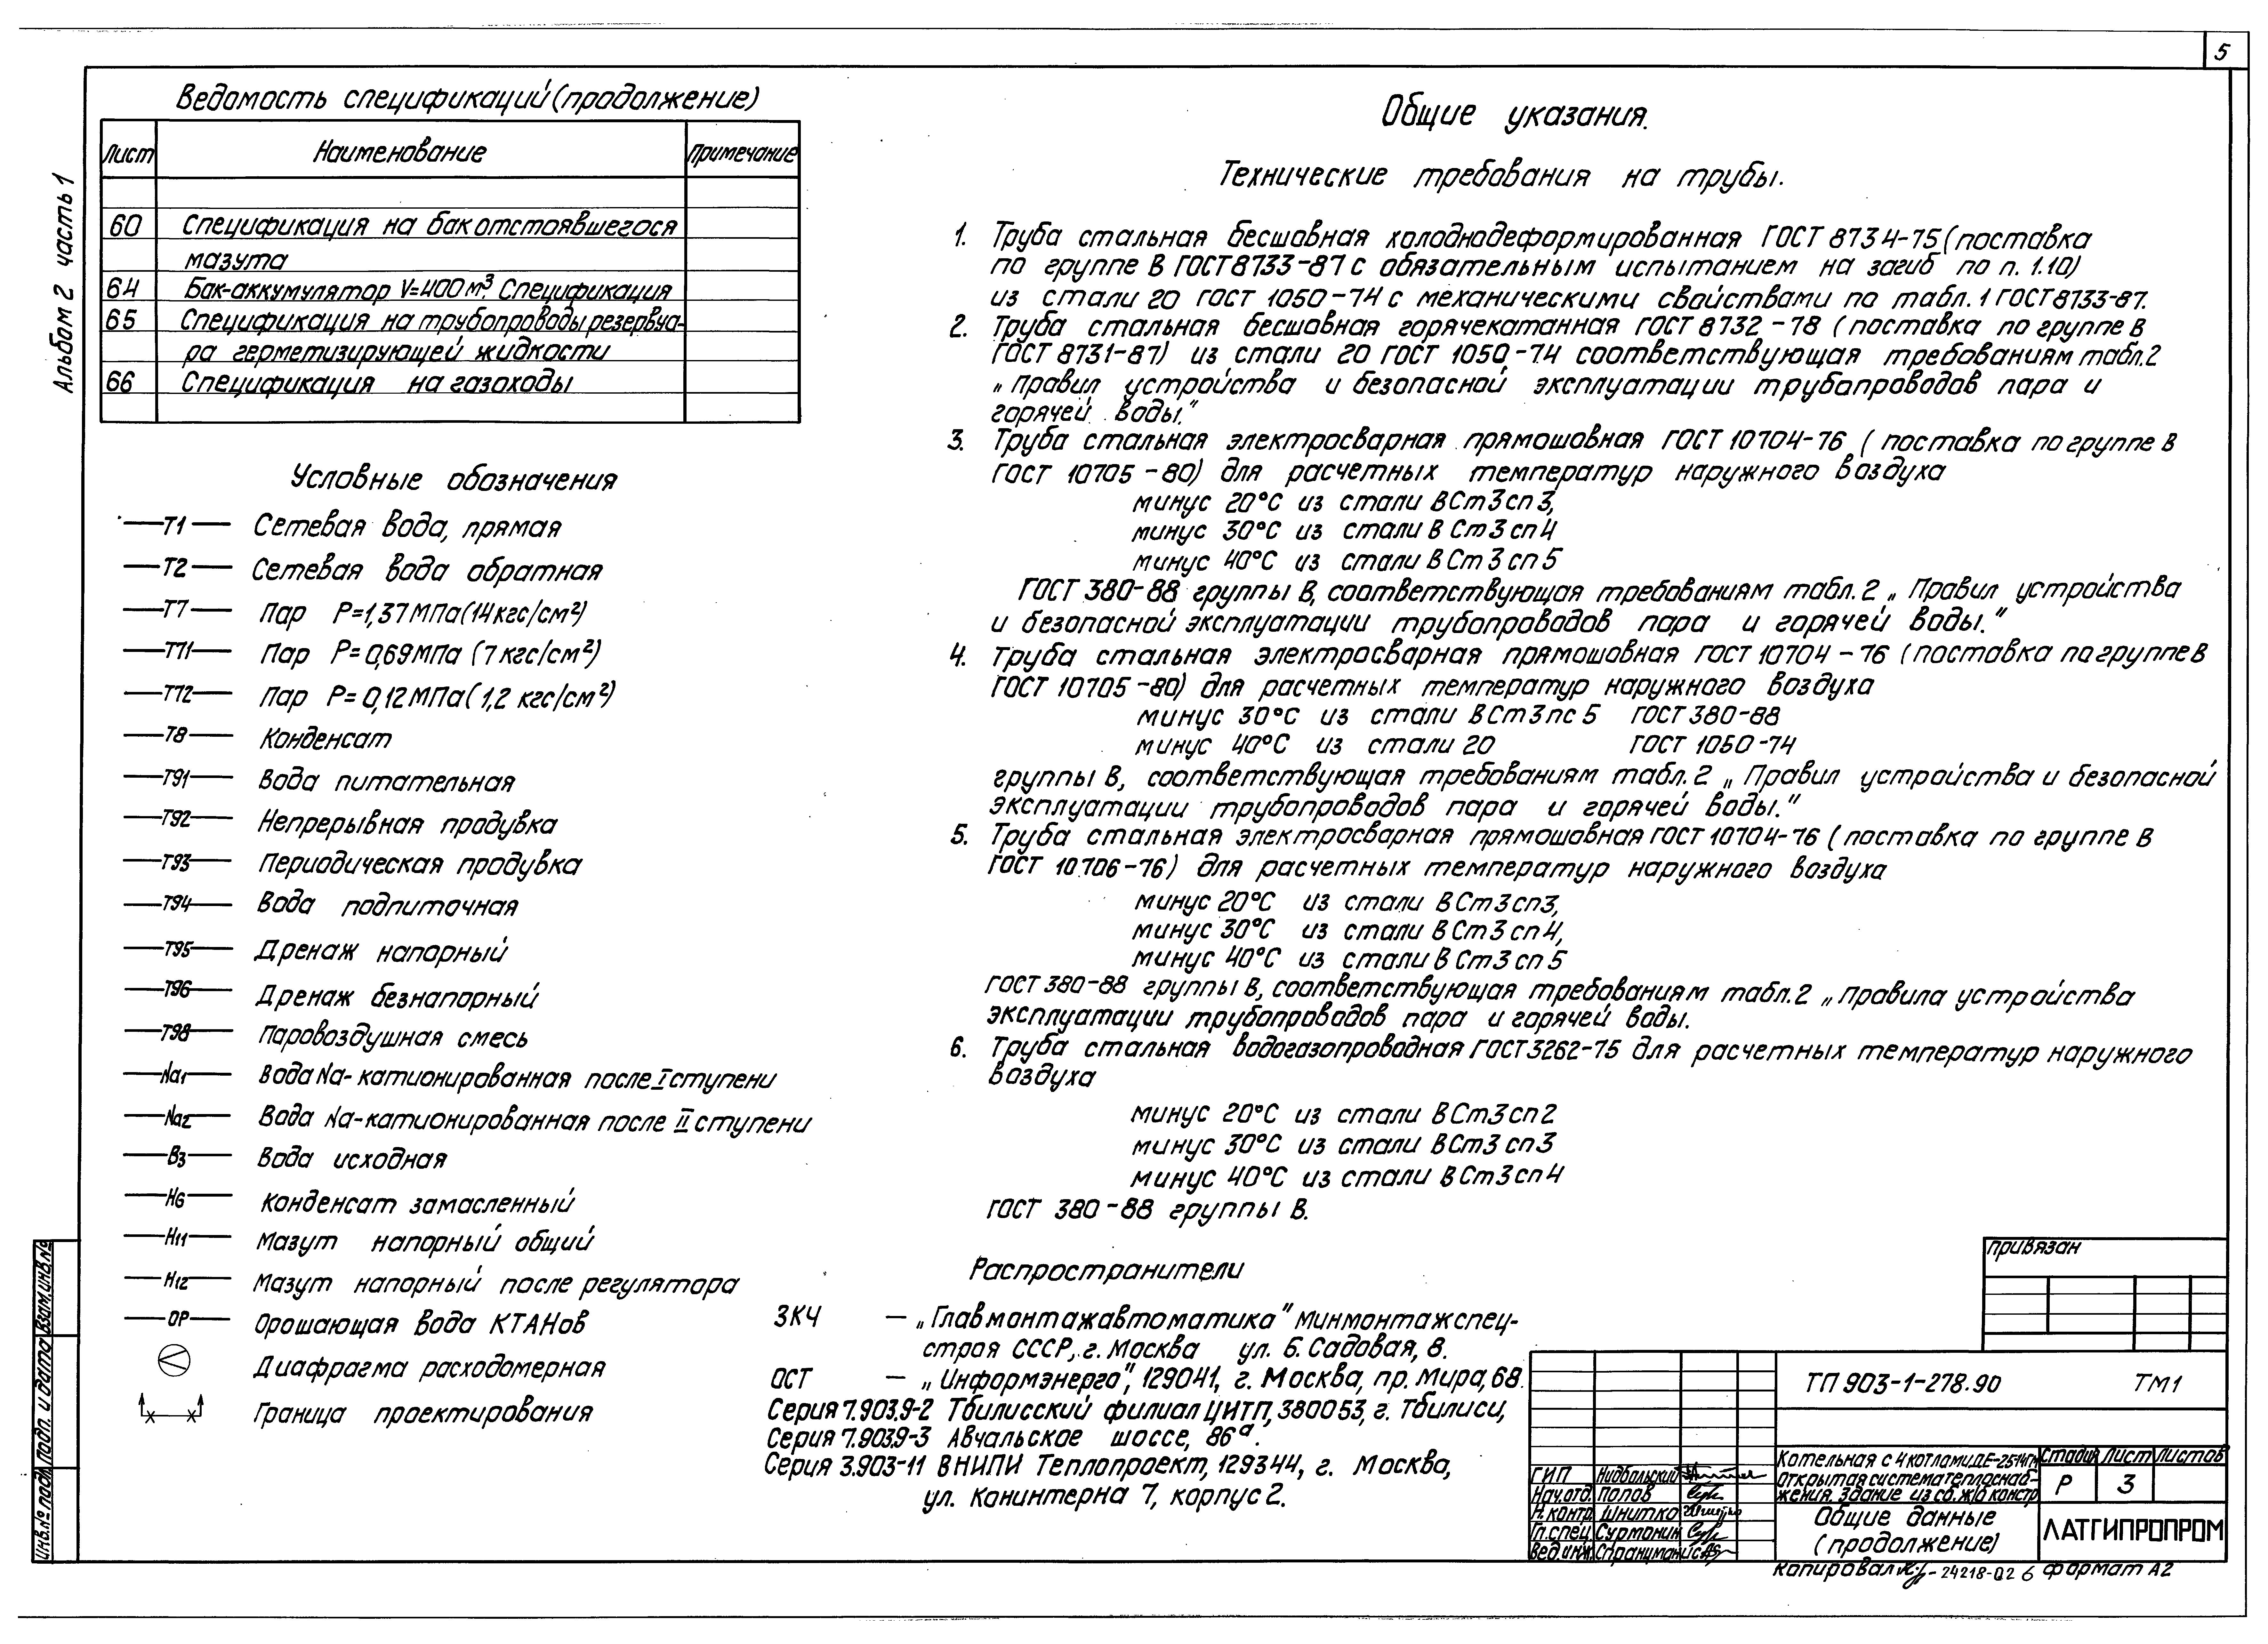 5
Альбом 2 часть 1
Ведомость спецификаций (продолжение)
Лист Наименование Примечание
60 Спецификация на бак отстоявшегося
мазута
64 Бак-аккумулятор V=400м³. Спецификация
65 Спецификация на трубопроводы резервуа-
ра герметизирующей жидкости
66 Спецификация на газоходы
Условные обозначения
Т1 Сетевая вода, прямая
Т2 Сетевая вода обратная
Т7 Пар Р=1,37МПа(14кгс/см²)
Т71 Пар Р=0,69МПа (7 кгс/см²)
Т72 Пар Р=0,12МПа (1,2 кгс/см²)
Т8 Конденсат
Т91 Вода питательная
Т92 Непрерывная продувка
Т93 Периодическая продувка
Т94 Вода подпиточная
Т95 Дренаж напорный
Т96 Дренаж безнапорный
Т98 Паровоздушная смесь
Na1 Вода Na-катионированная после I ступени
Na2 Вода Na-катионированная после II ступени
В3 Вода исходная
Н6 Конденсат замасленный
Н11 Мазут напорный общий
Н12 Мазут напорный после регулятора
ОР Орошающая вода КТАНов
Диафрагма расходомерная
Граница проектирования
Общие указания.
Технические требования на трубы.
1. Труба стальная бесшовная холоднодеформированная ГОСТ 8734-75 (поставка
по группе В ГОСТ 8733-87 с обязательным испытанием на загиб по п. 1.10)
из стали 20 ГОСТ 1050-74 с механическими свойствами по табл. 1 ГОСТ 8733-87.
2. Труба стальная бесшовная горячекатанная ГОСТ 8732-78 (поставка по группе В
ГОСТ 8731-87) из стали 20 ГОСТ 1050-74 соответствующая требованиям табл.2
„Правил устройства и безопасной эксплуатации трубопроводов пара и
горячей воды."
3. Труба стальная электросварная прямошовная ГОСТ 10704-76 (поставка по группе В
ГОСТ 10705-80) для расчетных температур наружного воздуха
минус 20°С из стали ВСт3сп3,
минус 30°С из стали ВСт3сп4
минус 40°С из стали ВСт3сп5
ГОСТ 380-88 группы В, соответствующая требованиям табл.2 „Правил устройства
и безопасной эксплуатации трубопроводов пара и горячей воды."
4. Труба стальная электросварная прямошовная ГОСТ 10704-76 (поставка по группе В
ГОСТ 10705-80) для расчетных температур наружного воздуха
минус 30°С из стали ВСт3пс5 ГОСТ 380-88
минус 40°С из стали 20 ГОСТ 1050-74
группы В, соответствующая требованиям табл.2 „Правил устройства и безопасной
эксплуатации трубопроводов пара и горячей воды."
5. Труба стальная электросварная прямошовная ГОСТ 10704-76 (поставка по группе В
ГОСТ 10706-76) для расчетных температур наружного воздуха
минус 20°С из стали ВСт3сп3,
минус 30°С из стали ВСт3сп4,
минус 40°С из стали ВСт3сп5
ГОСТ 380-88 группы В, соответствующая требованиям табл.2 „Правила устройства
эксплуатации трубопроводов пара и горячей воды.
6. Труба стальная водогазопроводная ГОСТ 3262-75 для расчетных температур наружного
воздуха
минус 20°С из стали ВСт3сп2
минус 30°С из стали ВСт3сп3
минус 40°С из стали ВСт3сп4
ГОСТ 380-88 группы В.
Распространители
ЗКЧ — „Главмонтажавтоматика" Минмонтажспец-
строя СССР, г. Москва ул. Б. Садовая, 8.
ОСТ — „Информэнерго", 129041, г. Москва, пр. Мира, 68.
Серия 7.903.9-2 Тбилисский филиал ЦИТП, 380053, г. Тбилиси,
Серия 7.903.9-3 Авчальское шоссе, 86ª.
Серия 3.903-11 ВНИПИ Теплопроект, 129344, г. Москва,
ул. Конинтерна 7, корпус 2.
Привязан
ТП 903-1-278.90 ТМ1
Котельная с 4 котлами ДЕ-25-14ГМ
Открытая система теплоснаб-
жения. Здание из сб. ж/б констр
Стадия Лист Листов
Р 3
Общие данные
(продолжение)
ЛАТГИПРОПРОМ
ГИП Нидбальский
Нач.отд. Попов
Н.контр. Шнитко
Гл.спец. Сурманин
Вед.инж.
Копировал 24218-02 6 Формат А2
Инв.№ подл. Подп. и дата Взам.инв.№